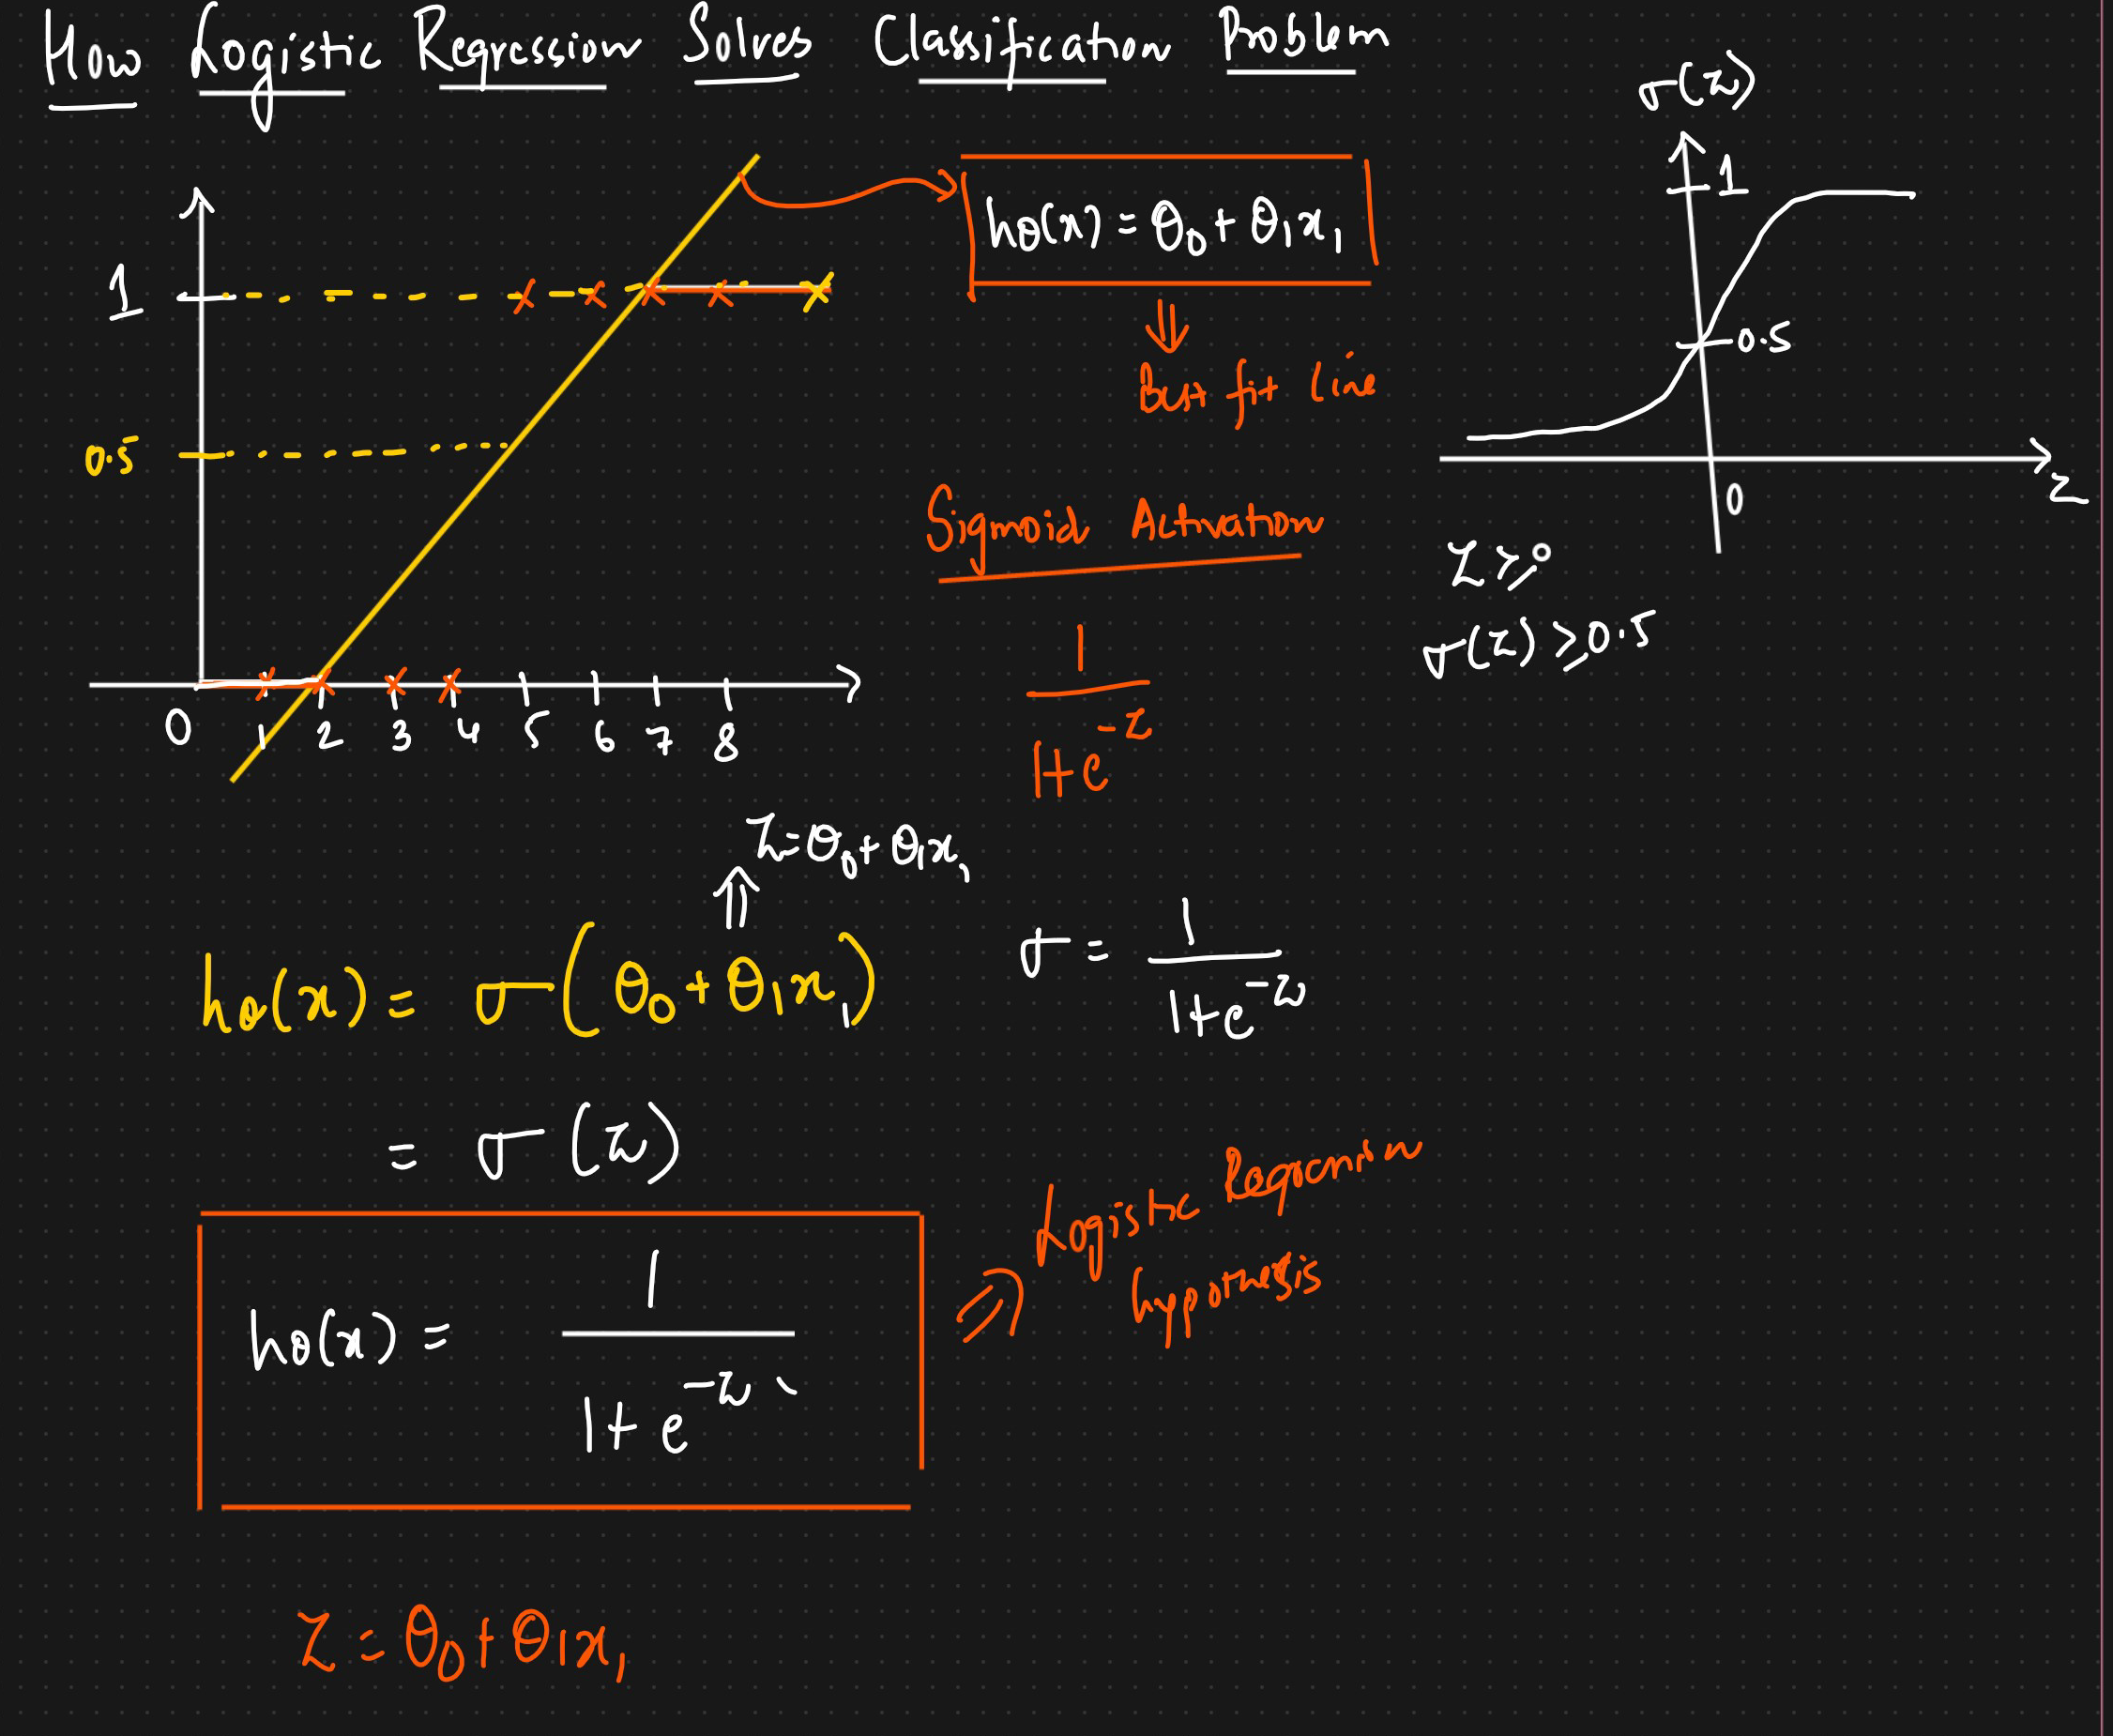 How Logistic Regression Solves Classification Problem
σ(z)
1
0.5
0
z
1
0.5
0 1 2 3 4 5 6 7 8
hθ(x) = θ0 + θ1x1
Best fit line
Sigmoid Activation
1
1+e^-z
Z ≥ 0
σ(z) ≥ 0.5
Z = θ0 + θ1x1
hθ(x) = σ(θ0 + θ1x1)
σ = 1
1+e^-z
= σ(z)
hθ(x) = 1
1+e^-z
Logistic Regression
hypothesis
Z = θ0 + θ1x1